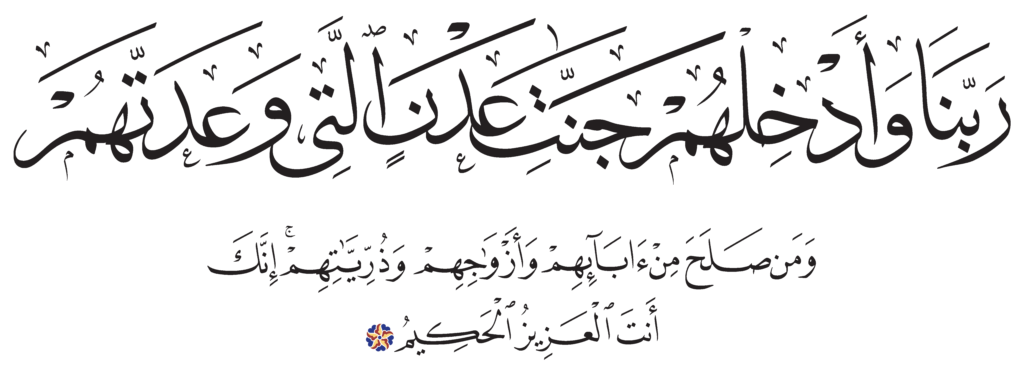 رَبَّنَا وَأَدْخِلْهُمْ جَنَّٰتِ عَدْنٍ ٱلَّتِى وَعَدتَّهُمْ
وَمَن صَلَحَ مِنْ ءَابَآئِهِمْ وَأَزْوَٰجِهِمْ وَذُرِّيَّٰتِهِمْ ۚ إِنَّكَ
أَنتَ ٱلْعَزِيزُ ٱلْحَكِيمُ